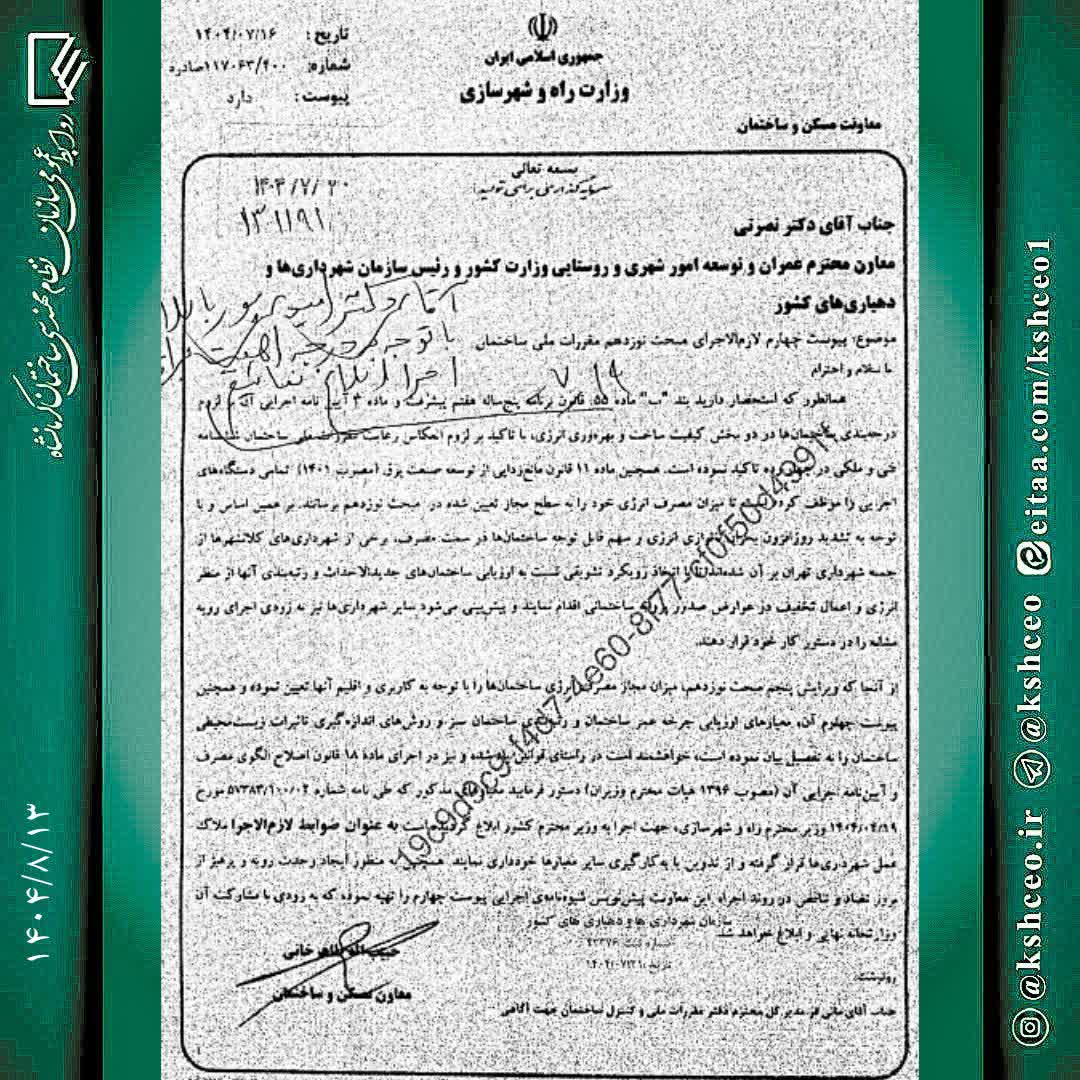 جمهوری اسلامی ایران
وزارت راه و شهرسازی
معاونت مسکن و ساختمان
تاریخ: ۱۴۰۴/۰۷/۱۶
شماره: ۱۱۷۰۶۳/۴۰۰صادره
پیوست: دارد
بسمه تعالی
سرمایه‌گذاری برای تولید
۱۴۰۴/۷/۲۰
۱۳۱۱۹۱
جناب آقای دکتر نصرتی
معاون محترم عمران و توسعه امور شهری و روستایی وزارت کشور و رئیس سازمان شهرداری‌ها و
دهیاری‌های کشور
موضوع: پیوست چهارم لازم‌الاجرای مبحث نوزدهم مقررات ملی ساختمان
با توجه به
با سلام و احترام
همانطور که استحضار دارید بند "ب" ماده ۵۵، قانون برنامه پنج‌ساله هفتم پیشرفت و ماده ۳ آیین نامه اجرایی آن بر لزوم
درجه‌بندی ساختمان‌ها در دو بخش کیفیت ساخت و بهره‌وری انرژی، با تاکید بر لزوم انعکاس رعایت مقررات ملی ساختمان شناسنامه
فنی و ملکی در تاکید نموده است. همچنین ماده ۱۱ قانون مانع‌زدایی از توسعه صنعت برق (مصوب ۱۴۰۱) تمامی دستگاه‌های
اجرایی را موظف کرده تا میزان مصرف انرژی خود را به سطح مجاز تعیین شده در مبحث نوزدهم برسانند. بر همین اساس و با
توجه به تشدید روزافزون بحران انرژی و سهم قابل توجه ساختمان‌ها در سمت مصرف، برخی از شهرداری‌های کلانشهرها از
جمله شهرداری تهران بر آن شده‌اند تا با اتخاذ رویکرد تشویقی نسبت به ارزیابی ساختمان‌های جدیدالاحداث و رتبه‌بندی آنها از منظر
انرژی و اعمال تخفیف در عوارض صدور پروانه ساختمانی اقدام نمایند و پیش‌بینی می‌شود سایر شهرداری‌ها نیز به زودی اجرای رویه
مشابه را در دستور کار خود قرار دهند.
از آنجا که ویرایش پنجم مبحث نوزدهم، میزان مجاز مصرف انرژی ساختمان‌ها را با توجه به کاربری و اقلیم آنها تعیین نموده و همچنین
پیوست چهارم آن، معیارهای ارزیابی چرخه عمر ساختمان و رتبه‌بندی ساختمان سبز و روش‌های اندازه‌گیری تاثیرات زیست‌محیطی
ساختمان را به تفصیل بیان نموده است، خواهشمند است در راستای قوانین یادشده و نیز در اجرای ماده ۱۸ قانون اصلاح الگوی مصرف
و آیین‌نامه اجرایی آن (مصوب ۱۳۹۶ هیات محترم وزیران) دستور فرمایید معیارهای مذکور که طی نامه شماره ۵۷۳۸۳/۱۰۰/۰۲ مورخ
۱۴۰۴/۰۴/۱۹ وزیر محترم راه و شهرسازی، جهت اجرا به وزیر محترم کشور ابلاغ گردیده است به عنوان ضوابط لازم‌الاجرا ملاک
عمل شهرداری‌ها قرار گرفته و از تدوین یا به‌کارگیری سایر معیارها خودداری نمایند. همچنین به منظور ایجاد وحدت رویه و پرهیز از
بروز تضاد و تناقض در روند اجرا، این معاونت پیش‌نویس شیوه‌نامه‌ی اجرایی پیوست چهارم را تهیه نموده که به زودی با مشارکت آن
وزارتخانه نهایی و ابلاغ خواهد شد.
سازمان شهرداری ها و دهیاری های کشور
شماره ثبت
حبیب‌اله طاهرخانی
معاون مسکن و ساختمان
رونوشت:
جناب آقای مانی‌فر مدیر کل محترم دفتر مقررات ملی و کنترل ساختمان جهت آگاهی
روابط عمومی سازمان نظام مهندسی ساختمان کرمانشاه
۱۴۰۴/۸/۱۳
@kshceo.ir
@kshceo
eitaa.com/kshceo1